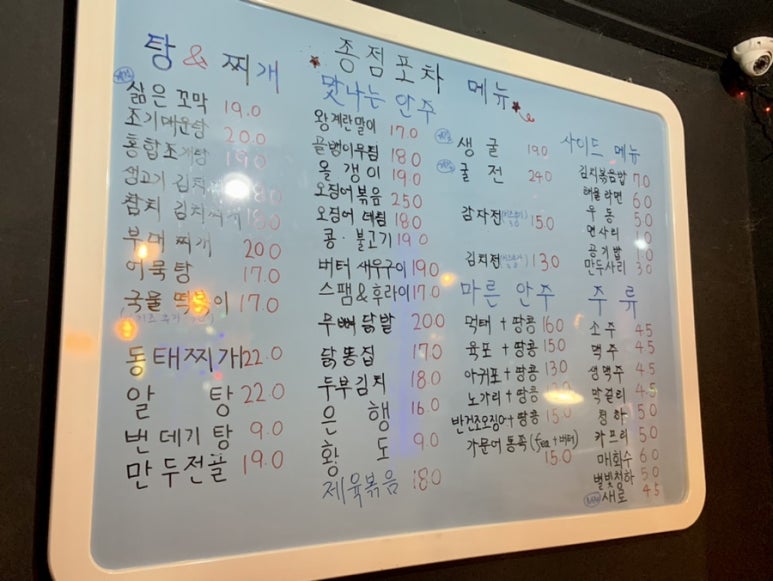 종점포차 메뉴
탕 & 찌개
삶은 꼬막 19.0
조기매운탕 20.0
홍합조개탕 19.0
생고기 김치찌개 18.0
참치 김치찌개 18.0
부대찌개 20.0
어묵탕 17.0
국물 떡볶이 17.0
동태찌개 22.0
알탕 22.0
번데기탕 9.0
만두전골 19.0
맛나는 안주
왕계란말이 17.0
골뱅이무침 18.0
올갱이 19.0
오징어볶음 25.0
오징어 데침 18.0
콩·불고기 19.0
버터 새우구이 19.0
스팸&후라이 17.0
무뼈닭발 20.0
닭똥집 17.0
두부김치 18.0
은행 16.0
황도 9.0
제육볶음 18.0
생굴 19.0
굴전 24.0
감자전 15.0
김치전 13.0
마른 안주
먹태+땅콩 16.0
육포+땅콩 15.0
아귀포+땅콩 13.0
노가리+땅콩
반건조오징어+땅콩 15.0
가문어 통쪽 15.0
사이드 메뉴
김치볶음밥 7.0
해물라면 6.0
우동 5.0
면사리 1.0
공기밥 1.0
만두사리 3.0
주류
소주 4.5
맥주 4.5
생맥주 4.5
막걸리 4.5
청하 5.0
카프리 5.0
매화수 6.0
별빛청하 5.0
새로 4.5